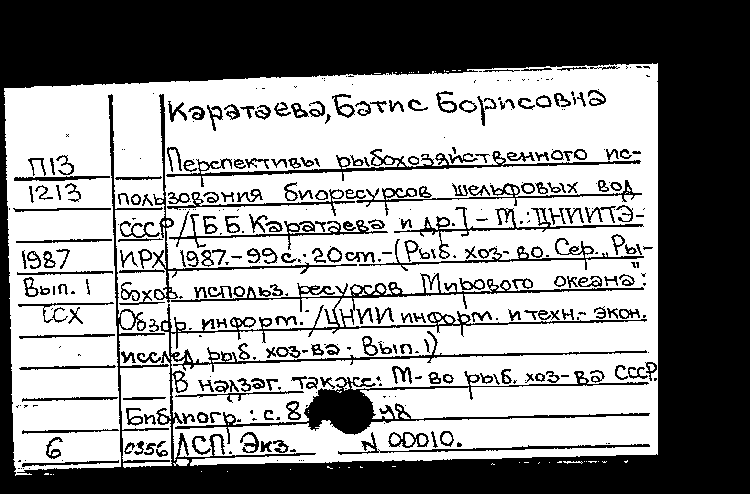 Каратаева, Батис Борисовна
П13 Перспективы рыбохозяйственного ис-
1213 пользования биоресурсов шельфовых вод
СССР / [Б.Б. Каратаева и др.] - М.: ЦНИИТЭ-
1987 ИРХ, 1987. - 99 с.; 20 см. - (Рыб. хоз-во. Сер. „Ры-
Вып. 1 бохоз. использ. ресурсов Мирового океана":
ССХ Обзор. информ. / ЦНИИ информ. и техн.- экон.
исслед. рыб. хоз-ва; Вып. 1)
В надзаг. также: М-во рыб. хоз-ва СССР.
Библиогр.: с. 8 98
6 0356 ЛСП. Экз. N 00010.